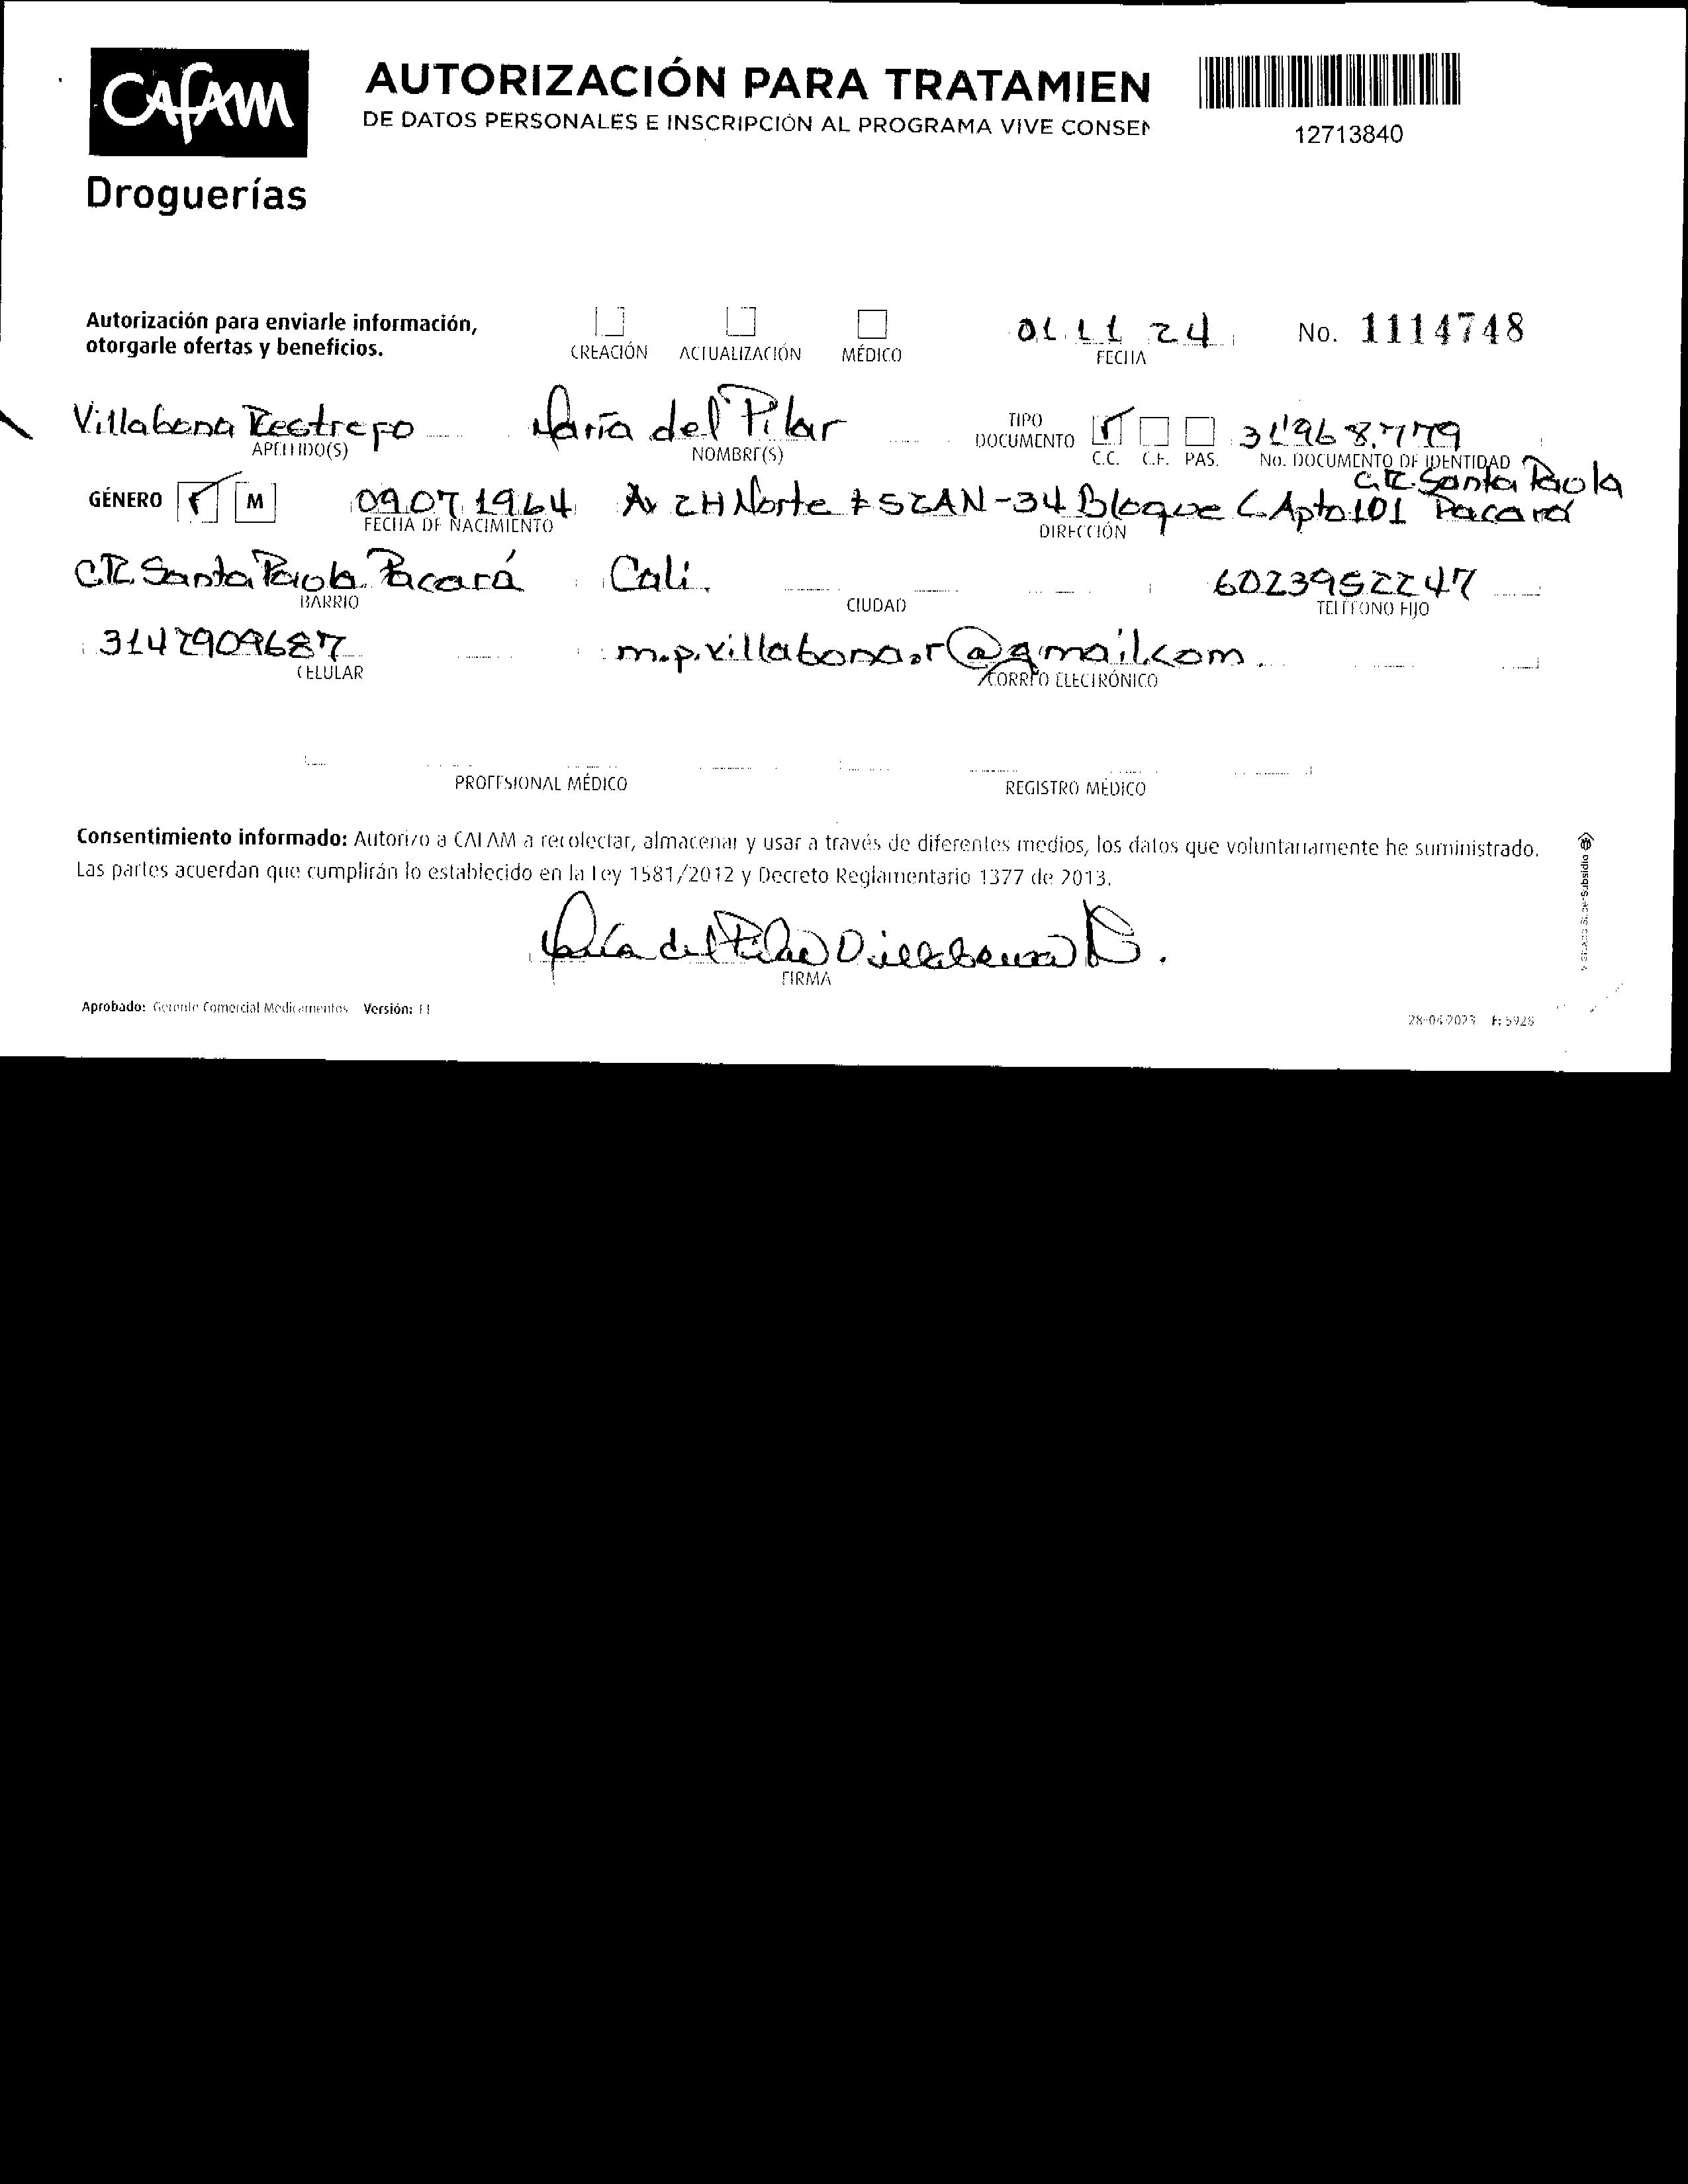 CAFAM
Droguerías
AUTORIZACIÓN PARA TRATAMIEN
DE DATOS PERSONALES E INSCRIPCIÓN AL PROGRAMA VIVE CONSEN
12713840
Autorización para enviarle información,
otorgarle ofertas y beneficios.
CREACIÓN ACTUALIZACIÓN MÉDICO
01 11 24
FECHA
No. 1114748
Villabona Restrepo
APELLIDO(S)
María del Pilar
NOMBRE(S)
TIPO
DOCUMENTO
C.C. C.E. PAS.
31968.779
No. DOCUMENTO DE IDENTIDAD
GÉNERO F M
09 07 1964
FECHA DE NACIMIENTO
Av 2H Norte # 52AN-34 Bloque 6 Apto 101
CR Santa Paola
Pacará
DIRECCIÓN
CR Santa Paola Pacará
BARRIO
Cali.
CIUDAD
6023952247
TELÉFONO FIJO
3147909687
CELULAR
m.p.villabona.r@gmail.com
CORREO ELECTRÓNICO
PROFESIONAL MÉDICO
REGISTRO MÉDICO
Consentimiento informado: Autorizo a CAFAM a recolectar, almacenar y usar a través de diferentes medios, los datos que voluntariamente he suministrado.
Las partes acuerdan que cumplirán lo establecido en la Ley 1581/2012 y Decreto Reglamentario 1377 de 2013.
María del Pilar Villabona R.
FIRMA
Aprobado: Gerente Comercial Medicamentos Versión: 11
28-04-2023 F: 5928